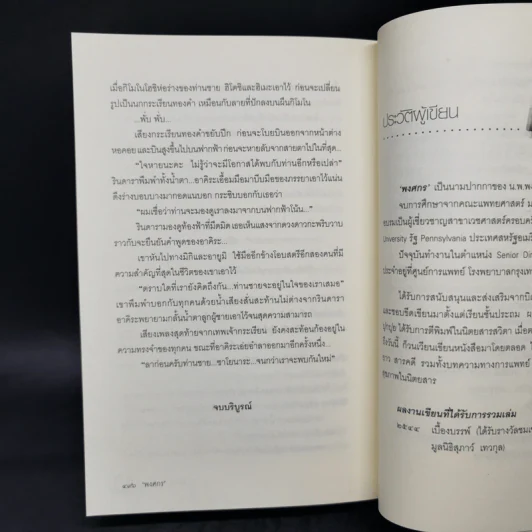 เมื่อกิโมโนโฮชิห่อร่างของท่านชาย ฮิโตชิและฮิเมะเอาไว้ ก่อนจะเปลี่ยน
รูปเป็นนกกระเรียนทองคำ เหมือนกับลายที่ปักลงบนผืนกิโมโน
...พับ พับ...
เสียงกระเรียนทองคำขยับปีก ก่อนจะโบยบินออกจากหน้าต่าง
หอคอย และบินสูงขึ้นไปบนฟากฟ้า ก่อนจะหายลับจากสายตาไปในที่สุด...
"ใจหายนะคะ ไม่รู้ว่าจะมีโอกาสได้พบกับท่านอีกหรือเปล่า"
รินดาราพึมพำทั้งน้ำตา...อาคิระเอื้อมมือมาบีบมือของภรรยาเอาไว้แน่น
ดึงร่างบอบบางมากอดแนบอก กระซิบบอกกับเธอว่า
"ผมเชื่อว่าท่านจะมองดูเราลงมาจากบนฟากฟ้าโน้น..."
รินดารามองดูท้องฟ้าที่มืดมิด เธอเห็นแสงจากดวงดาวกะพริบวาบ
ราวกับจะยืนยันคำพูดของอาคิระ...
เขาหันไปทางมิกิและอายูมิ ใช้มืออีกข้างโอบสตรีอีกสองคนที่มี
ความสำคัญที่สุดในชีวิตของเขาเอาไว้
"ตราบใดที่เรายังคิดถึงกัน...ท่านชายจะอยู่ในใจของเราเสมอ"
เขาพึมพำบอกกับทุกคนด้วยน้ำเสียงสั่นสะท้านไม่ต่างจากรินดารา
อาคิระพยายามกลั้นน้ำตา ลูกผู้ชายเอาไว้จนสุดความสามารถ
เสียงเพลงสุดท้ายจากเทพเจ้ากระเรียน ยังคงสะท้อนก้องอยู่ใน
ความทรงจำของทุกคน ขณะที่อาคิระเอ่ยอำลาออกมาอีกครั้งหนึ่ง...
"ลาก่อนครับท่านชาย...ซาโยนาระ...จนกว่าเราจะพบกันใหม่"
จบบริบูรณ์
"พงศกร"
ประวัติผู้เขียน
'พงศกร' เป็นนามปากกาของ น.พ.
จบการศึกษาจากคณะแพทยศาสตร์
อบรมเป็นผู้เชี่ยวชาญสาขาเวชศาสตร์ครอบครัว
University รัฐ Pennsylvania ประเทศสหรัฐอเมริ
ปัจจุบันทำงานในตำแหน่ง Senior Dir
ประจำอยู่ที่ศูนย์การแพทย์ โรงพยาบาลกรุงเทพ
ได้รับการสนับสนุนและส่งเสริมจาก
และชอบขีดเขียนมาตั้งแต่เรียนชั้นประถม
ได้รับการตีพิมพ์ในนิตยสารสวิตา เมื่อ
ก็วนเวียนเขียนหนังสือมาโดยตลอด
ราว สารคดี รวมทั้งบทความทางการแพทย์
สุขภาพในนิตยสาร
ผลงานเขียนที่ได้รับการรวมเล่ม
๒๕๔๔ เบื้องบรรพ์ (ได้รับรางวัลชม
มูลนิธิสุภาว์ เทวกุล)